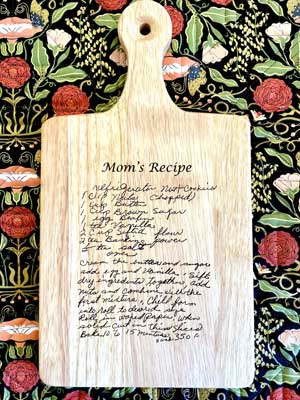 Mom's Recipe
Refrigerator Nut Cookies
1 Cup Nuts (chopped)
1 Cup Butter
1 Cup Brown Sugar
1 egg Beaten
1 tsp Vanilla
2 Cup Sifted flour
2 tea Baking power
tea salt
over
Cream the butter and sugar
add egg and Vanilla. Sift
dry ingredients together add
nuts and Combine with the
first mixture, Chill form
into roll to desired size
Roll in waxed Paper. When
solid Cut in thin slices
Bake 10 to 15 minutes 350 F